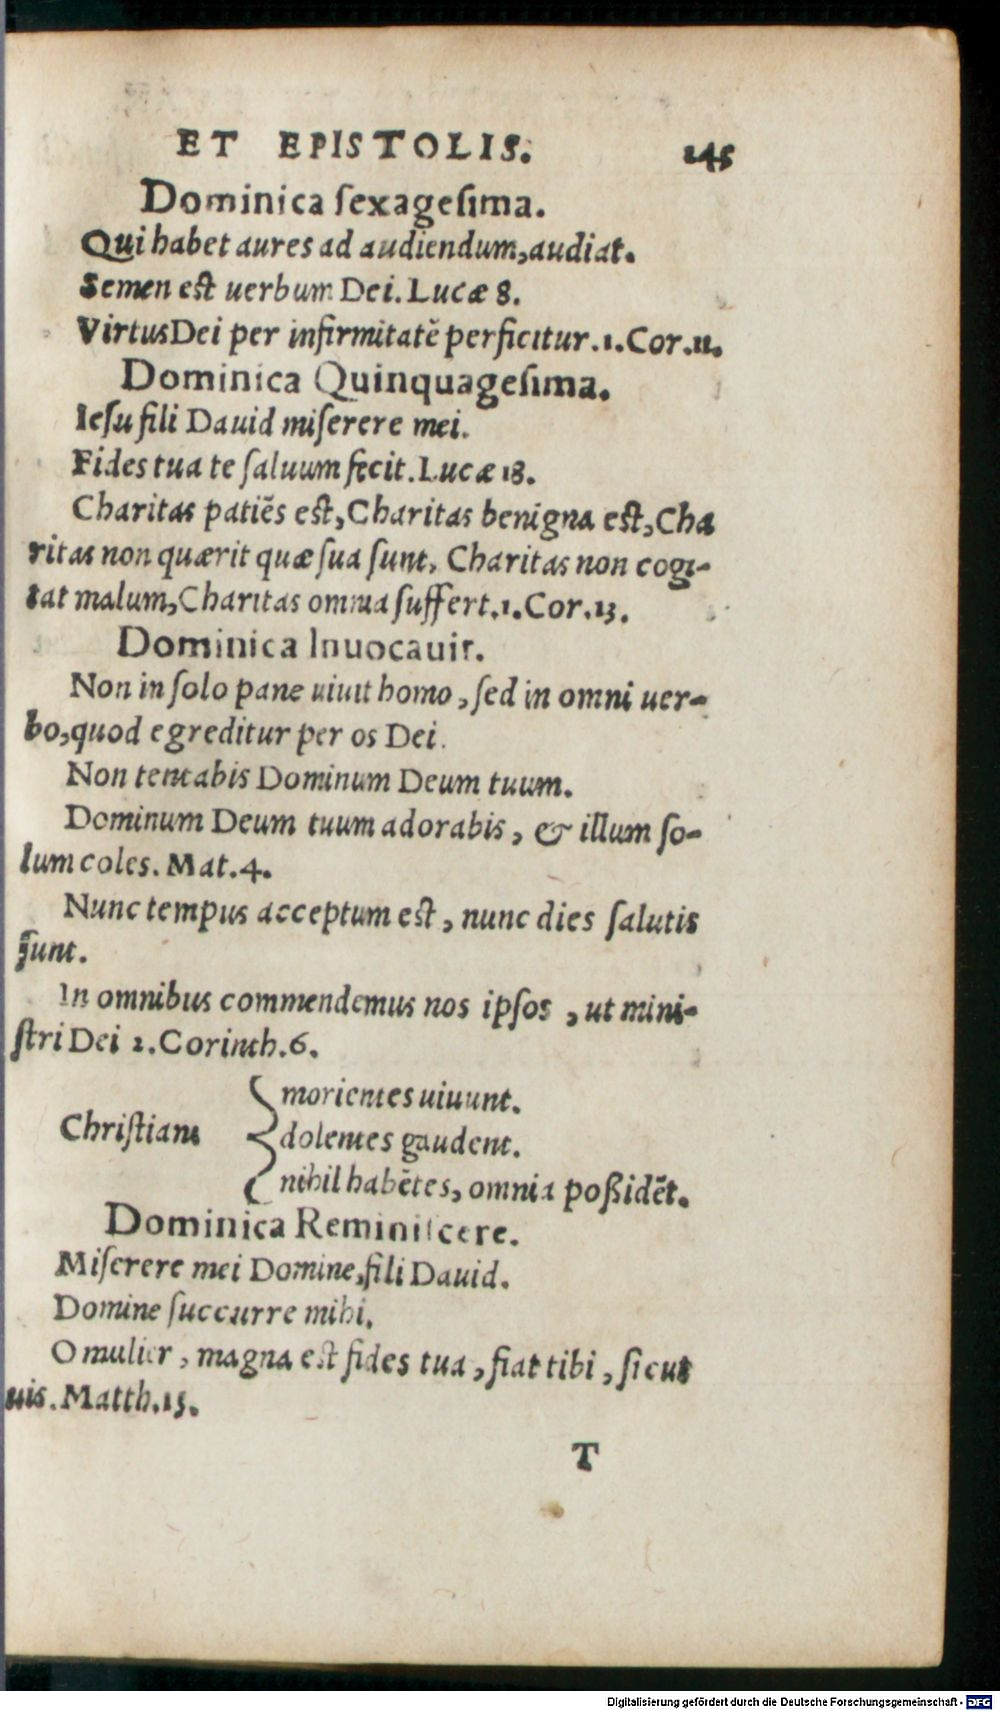 ET EPISTOLIS. 145
Dominica ſexageſima.
Qui habet aures ad audiendum, audiat.
Semen est uerbum Dei. Lucæ 8.
Virtus Dei per infirmitatē perficitur. 1. Cor. 11.
Dominica Quinquageſima.
Ieſu fili Dauid miſerere mei.
Fides tua te ſaluum fecit. Lucæ 18.
Charitas patiēs est, Charitas benigna est, Cha
ritas non quærit quæ ſua ſunt, Charitas non cogi-
tat malum, Charitas omnia ſuffert. 1. Cor. 13.
Dominica Inuocauit.
Non in ſolo pane uiuit homo, ſed in omni uer-
bo, quod egreditur per os Dei.
Non tentabis Dominum Deum tuum.
Dominum Deum tuum adorabis, & illum ſo-
lum coles. Mat. 4.
Nunc tempus acceptum est, nunc dies ſalutis
ſunt.
In omnibus commendemus nos ipſos, ut mini-
ſtri Dei 2. Corinth. 6.
morientes uiuunt.
Chriſtiani { dolentes gaudent.
nihil habētes, omnia poßidēt.
Dominica Reminiſcere.
Miſerere mei Domine, fili Dauid.
Domine ſuccurre mihi.
O mulier, magna est fides tua, fiat tibi, ſicut
uis. Matth. 15.
T
Digitalisierung gefördert durch die Deutsche Forschungsgemeinschaft - DFG